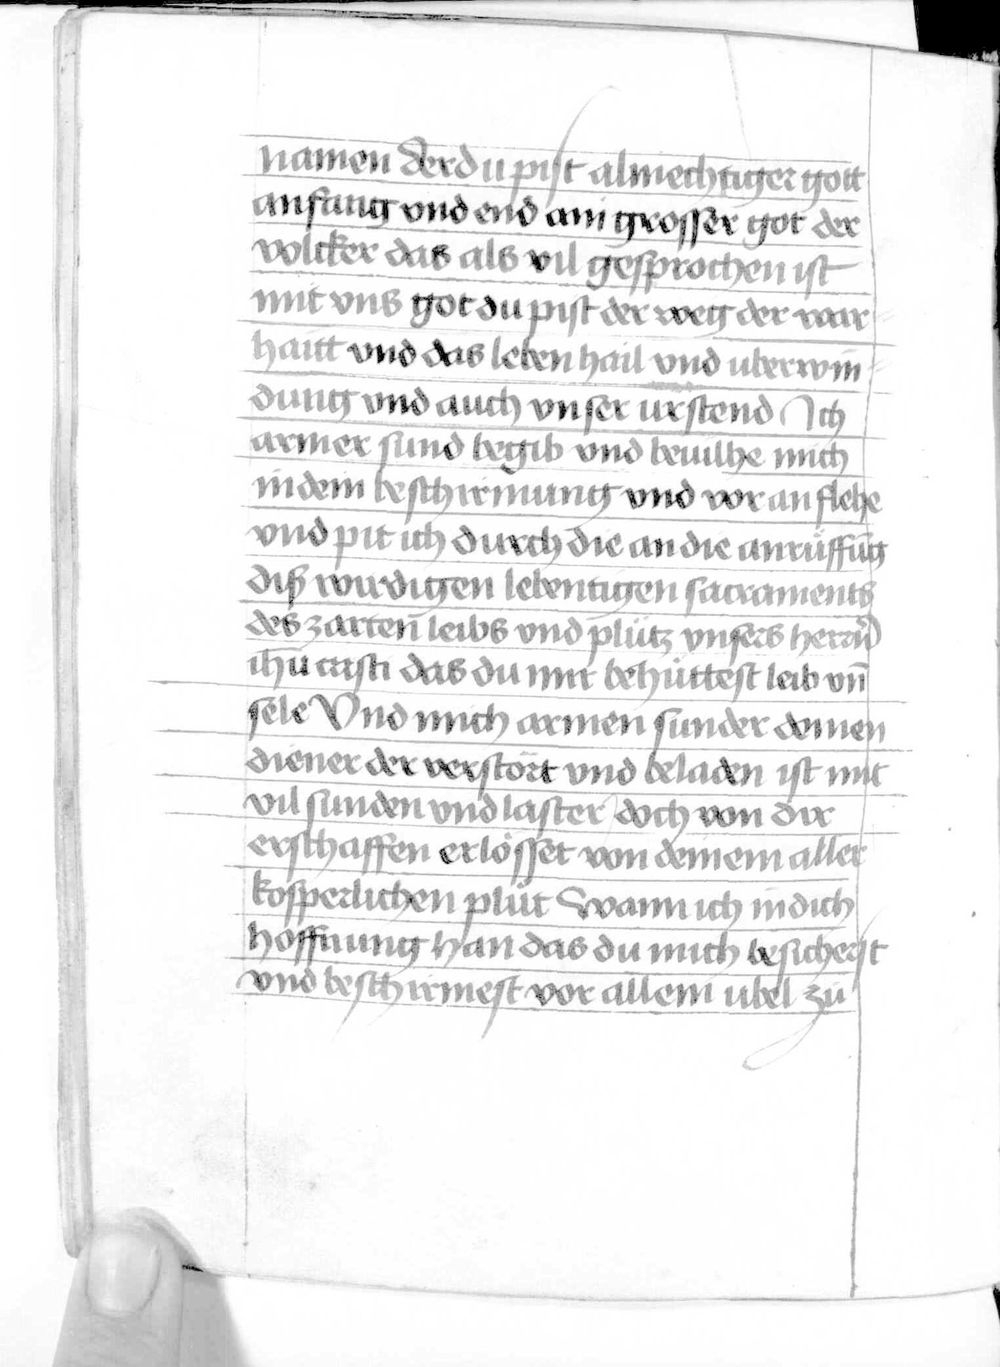 namen der du pist almechtiger gott
anfang vnd end ain grosser got der
volcker das als vil gesprochen ist
mit vns got du pist der weg der war
haitt vnd das leben hail vnd uberwin
dung vnd auch vnser urstend Ich
armer sund begib vnd beuilhe mich
in dein beschirmung vnd vor an flehe
vnd pit ich durch die an die anrüffūg
diß wirdigen lebentigen sacraments
des zarten leibs vnd plütz vnsers herrn
ihū cristi das du mir behüttest leib vn̄
sele Vnd mich armen sunder deinen
diener der verstört vnd beladen ist mit
vil sunden vnd laster doch von dir
erschaffen erlösset von deinem aller
kosperlichen plüt Wann ich in dich
hoffnung han das du mich besicherst
vnd beschirmest vor allem ubel zü